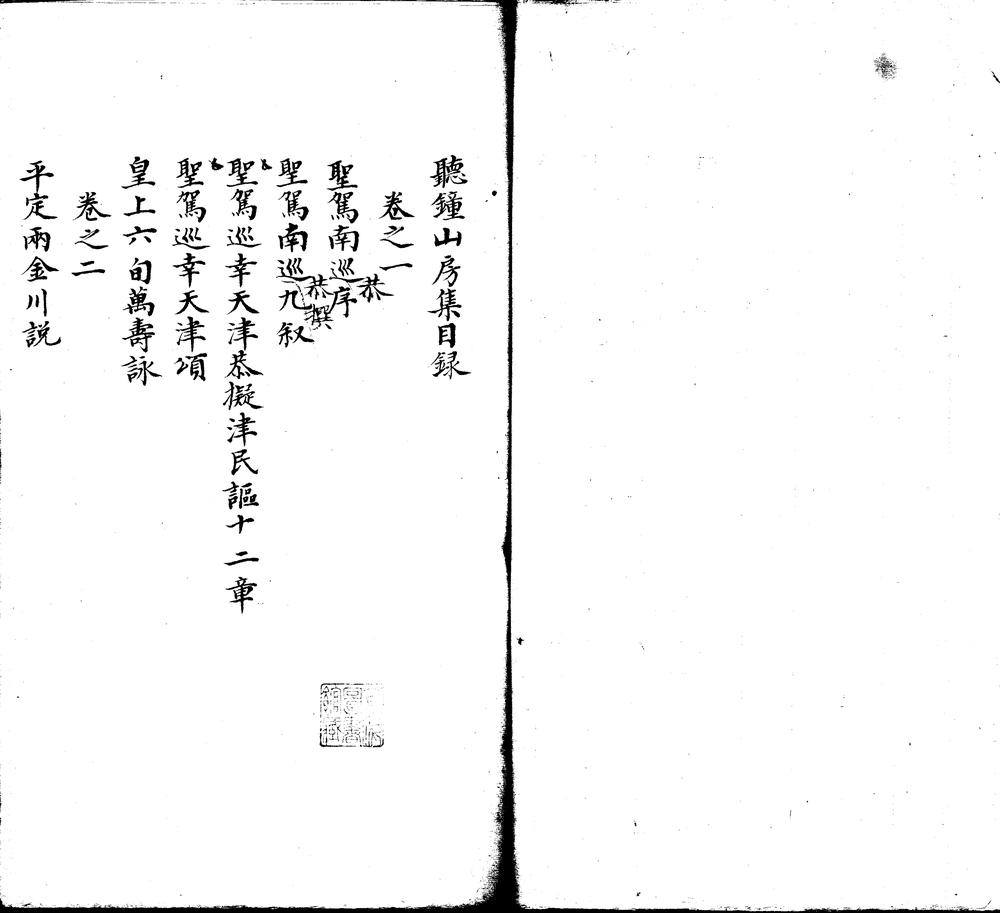 聽鐘山房集目録
卷之一
恭
聖駕南巡序
恭撰
聖駕南巡九叙
聖駕巡幸天津恭擬津民謳十二章
聖駕巡幸天津頌
皇上六旬萬壽詠
卷之二
平定兩金川説